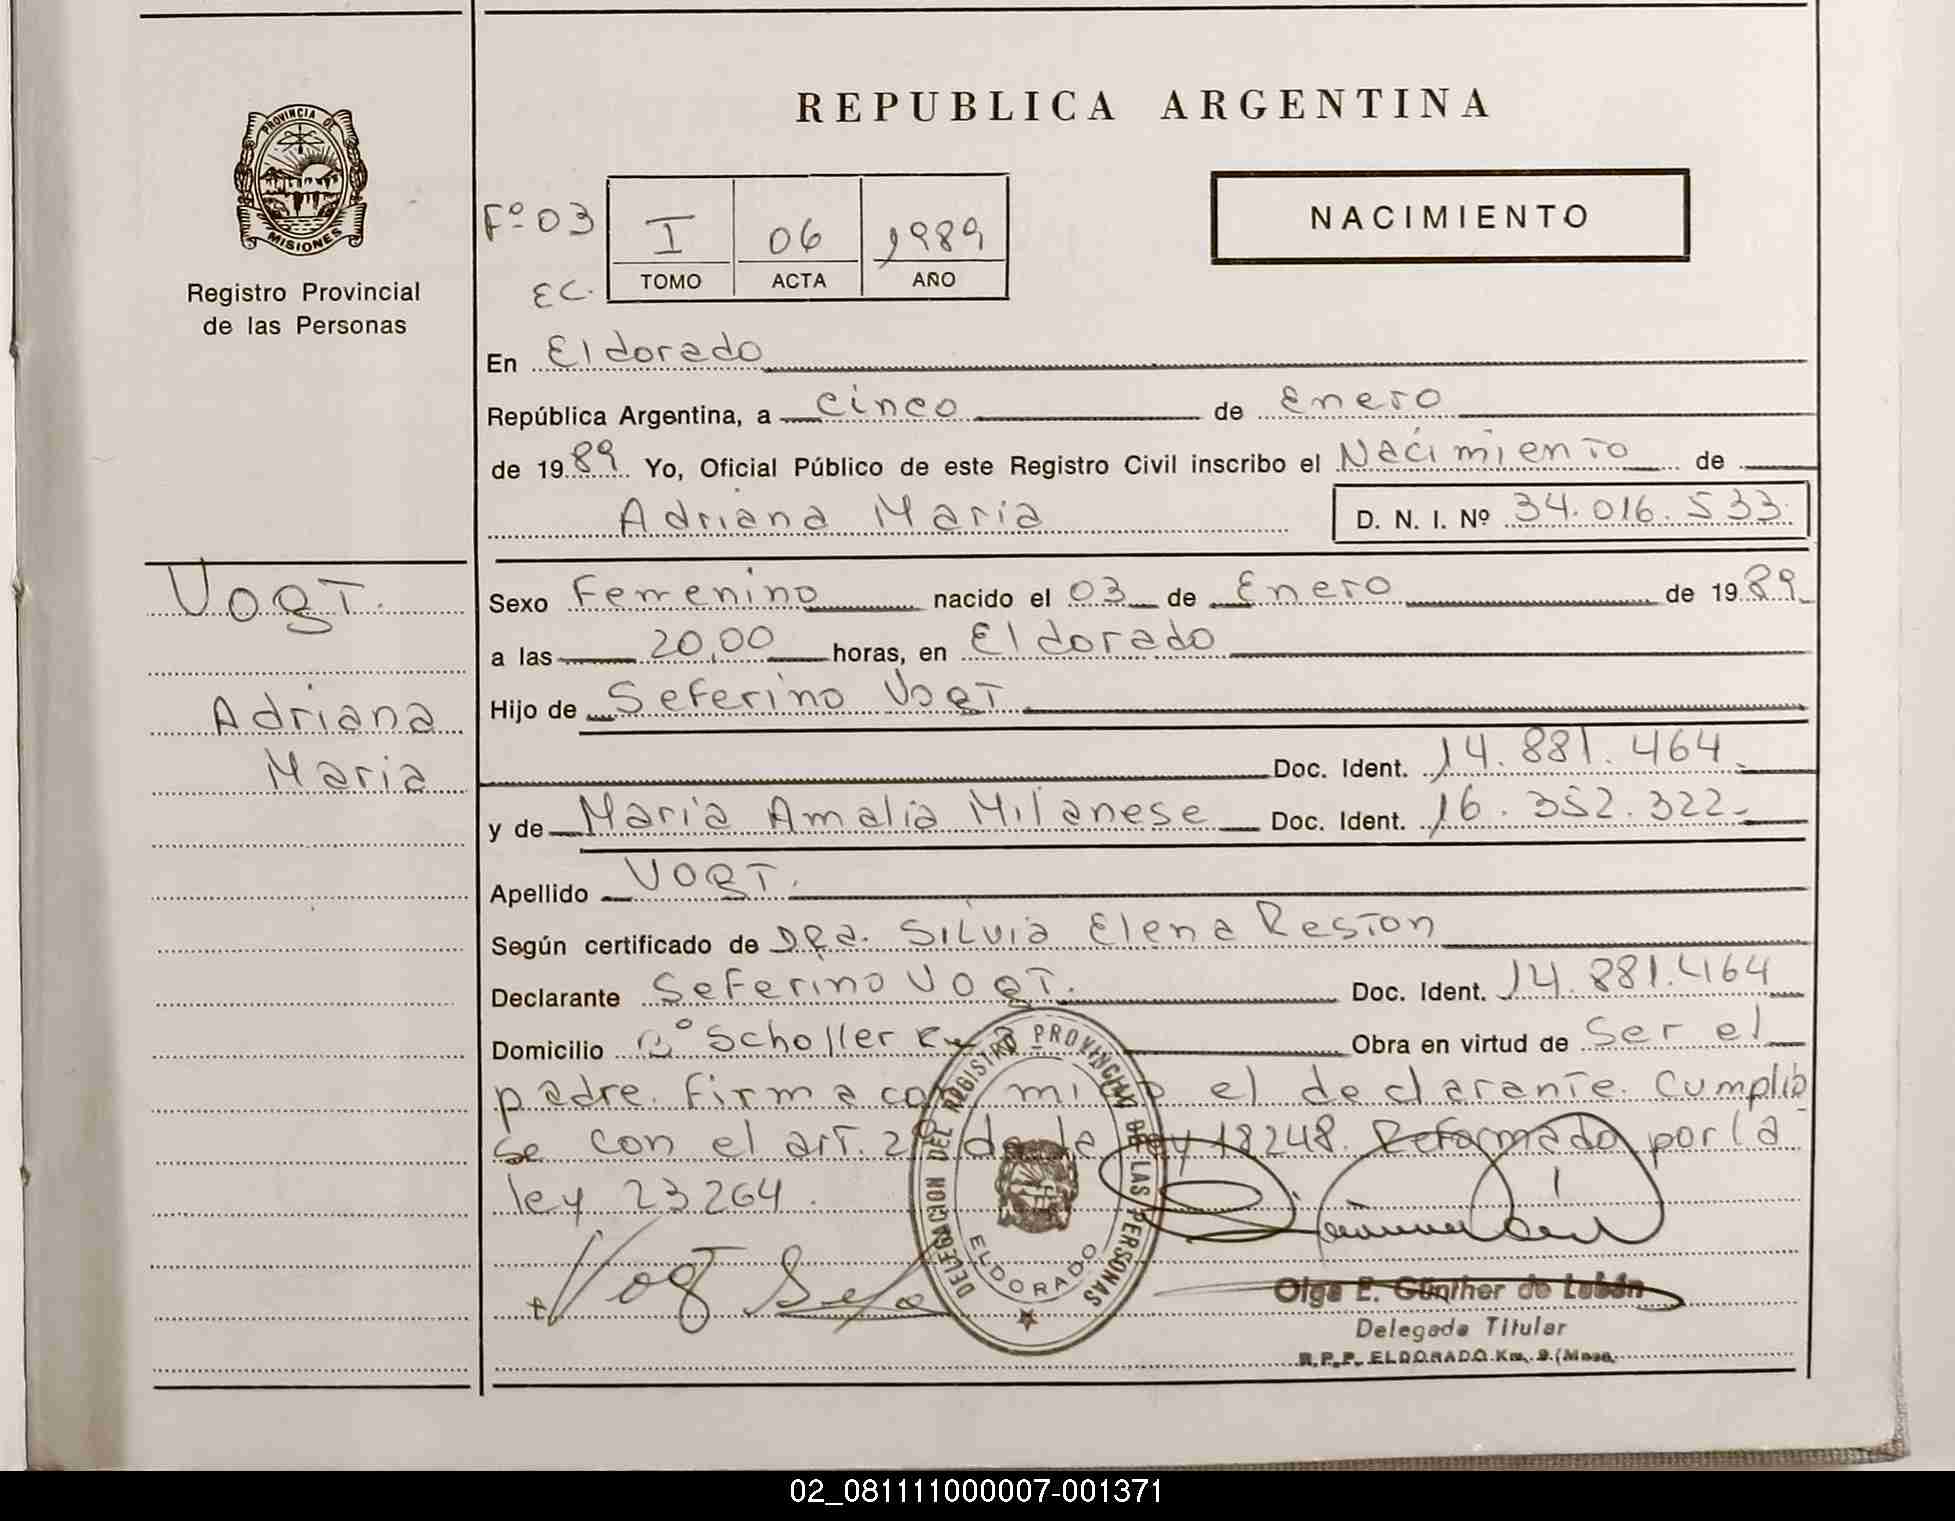 REPUBLICA ARGENTINA
PROVINCIA DE
MISIONES
Registro Provincial
de las Personas
Fº 03
EC.
I 06 1989
TOMO ACTA AÑO
NACIMIENTO
En Eldorado
República Argentina, a cinco de Enero
de 1989 Yo, Oficial Público de este Registro Civil inscribo el Nacimiento de
Adriana Maria D. N. I. Nº 34.016.533.
VOGT.
Adriana
Maria
Sexo Femenino nacido el 03 de Enero de 1989
a las 20,00 horas, en Eldorado
Hijo de Seferino VOGT
Doc. Ident. 14.881.464
y de Maria Amalia Milanese Doc. Ident. 16.352.322-
Apellido VOGT.
Según certificado de DRa. SiLvia Elena Reston
Declarante Seferino VOGT. Doc. Ident. 14.881.464
Domicilio Bº Scholler Obra en virtud de Ser el
padre. Firma con migo el declarante. Cumplio
se con el art. 2º de la ley 18248. Reformado por la
ley 23264.
Vogt Sefe
DELEGACION DEL REGISTRO PROVINCIAL DE LAS PERSONAS
ELDORADO
Olga E. Günther de Labán
Delegada Titular
R.P.P. ELDORADO Km. 9 (Mnes.
02_081111000007-001371